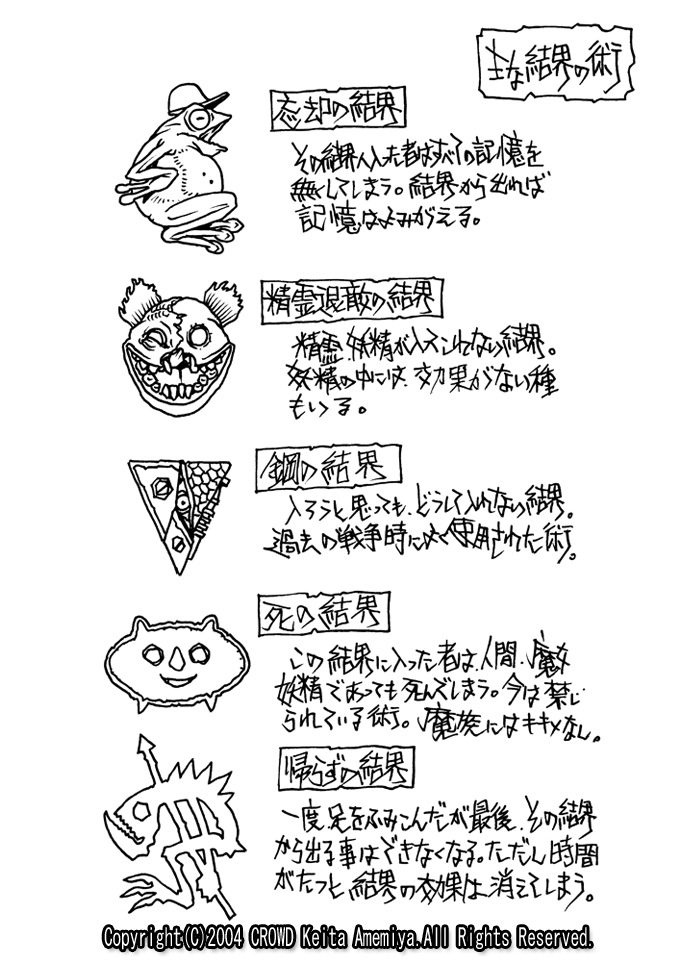 主な結界の術
忘却の結界
その結界へ入った者はすべての記憶を
無くしてしまう。結界から出れば
記憶はよみがえる。
精霊退散の結界
精霊、妖精が入ってこれない結界。
妖精の中には、効果がない種
もいる。
鋼の結界
入ろうと思っても、どうしても入れない結界。
過去の戦争時によく使用された術。
死の結界
この結界に入った者は、人間、魔女
妖精であっても死んでしまう。今は禁じ
られている術。魔族にはキキメなし。
帰らずの結界
一度足をふみこんだが最後、その結界
から出る事はできなくなる。ただし時間
がたつと結界の効果は消えてしまう。
Copyright(C)2004 CROWD Keita Amemiya.All Rights Reserved.